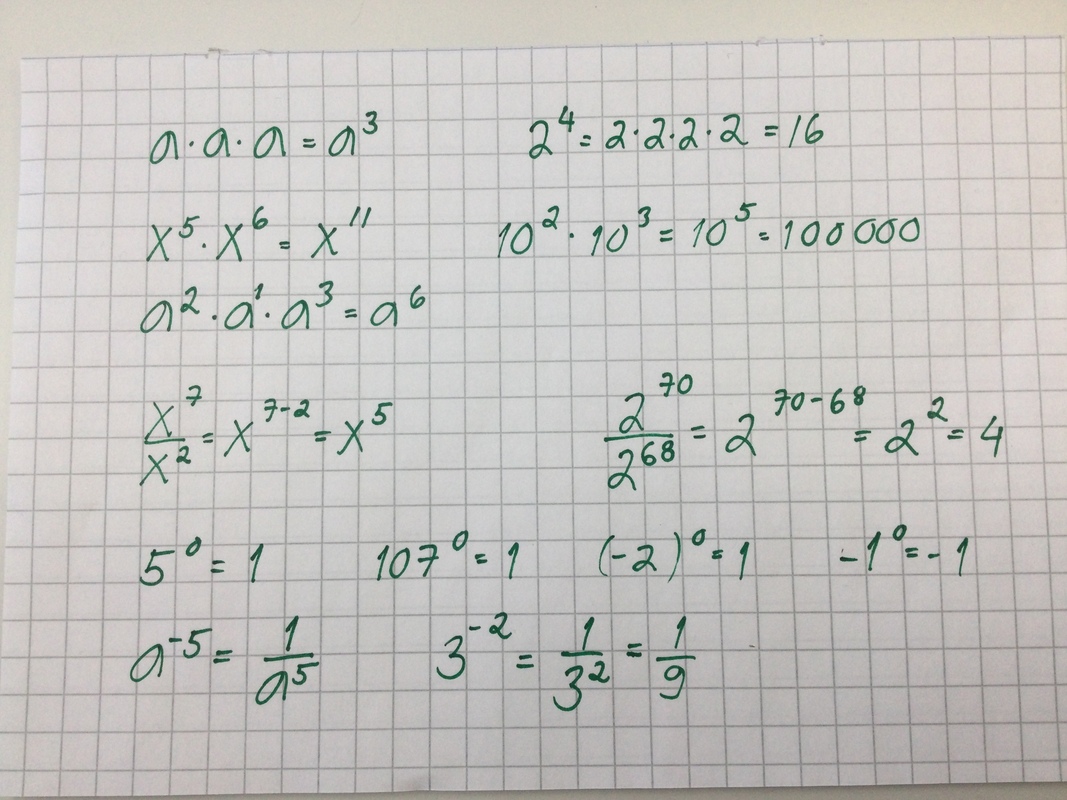 a·a·a = a³ 2⁴ = 2·2·2·2 = 16
x⁵·x⁶ = x¹¹ 10²·10³ = 10⁵ = 100 000
a²·a¹·a³ = a⁶
x⁷/x² = x⁷⁻² = x⁵ 2⁷⁰/2⁶⁸ = 2⁷⁰⁻⁶⁸ = 2² = 4
5⁰ = 1 107⁰ = 1 (-2)⁰ = 1 -1⁰ = -1
a⁻⁵ = 1/a⁵ 3⁻² = 1/3² = 1/9